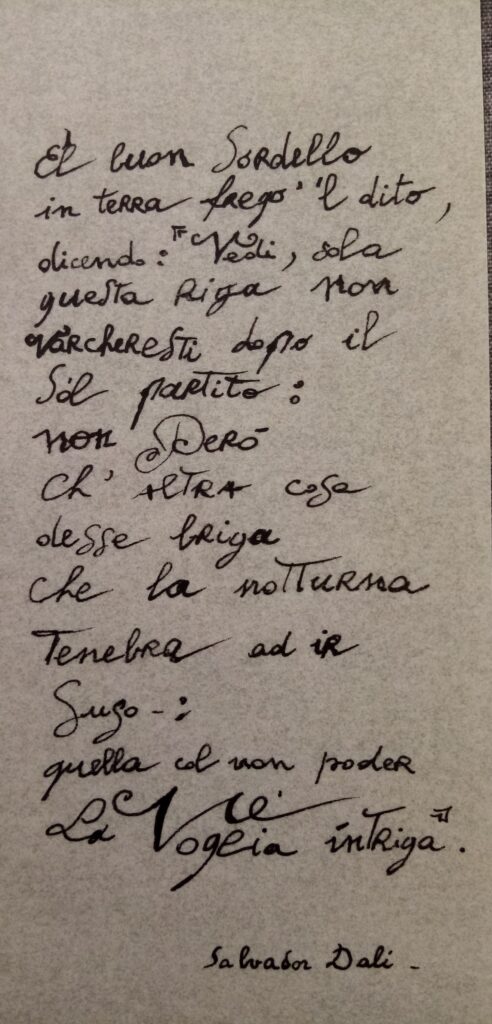 El buon Sordello
in terra fregò 'l dito,
dicendo: "Vedi, sola
questa riga non
varcheresti dopo il
Sol partito:
non Però
Ch' altra cosa
desse briga
che la notturna
Tenebra ad ir
Suso-:
quella col non poder
La Voglia intriga".
Salvador Dali -